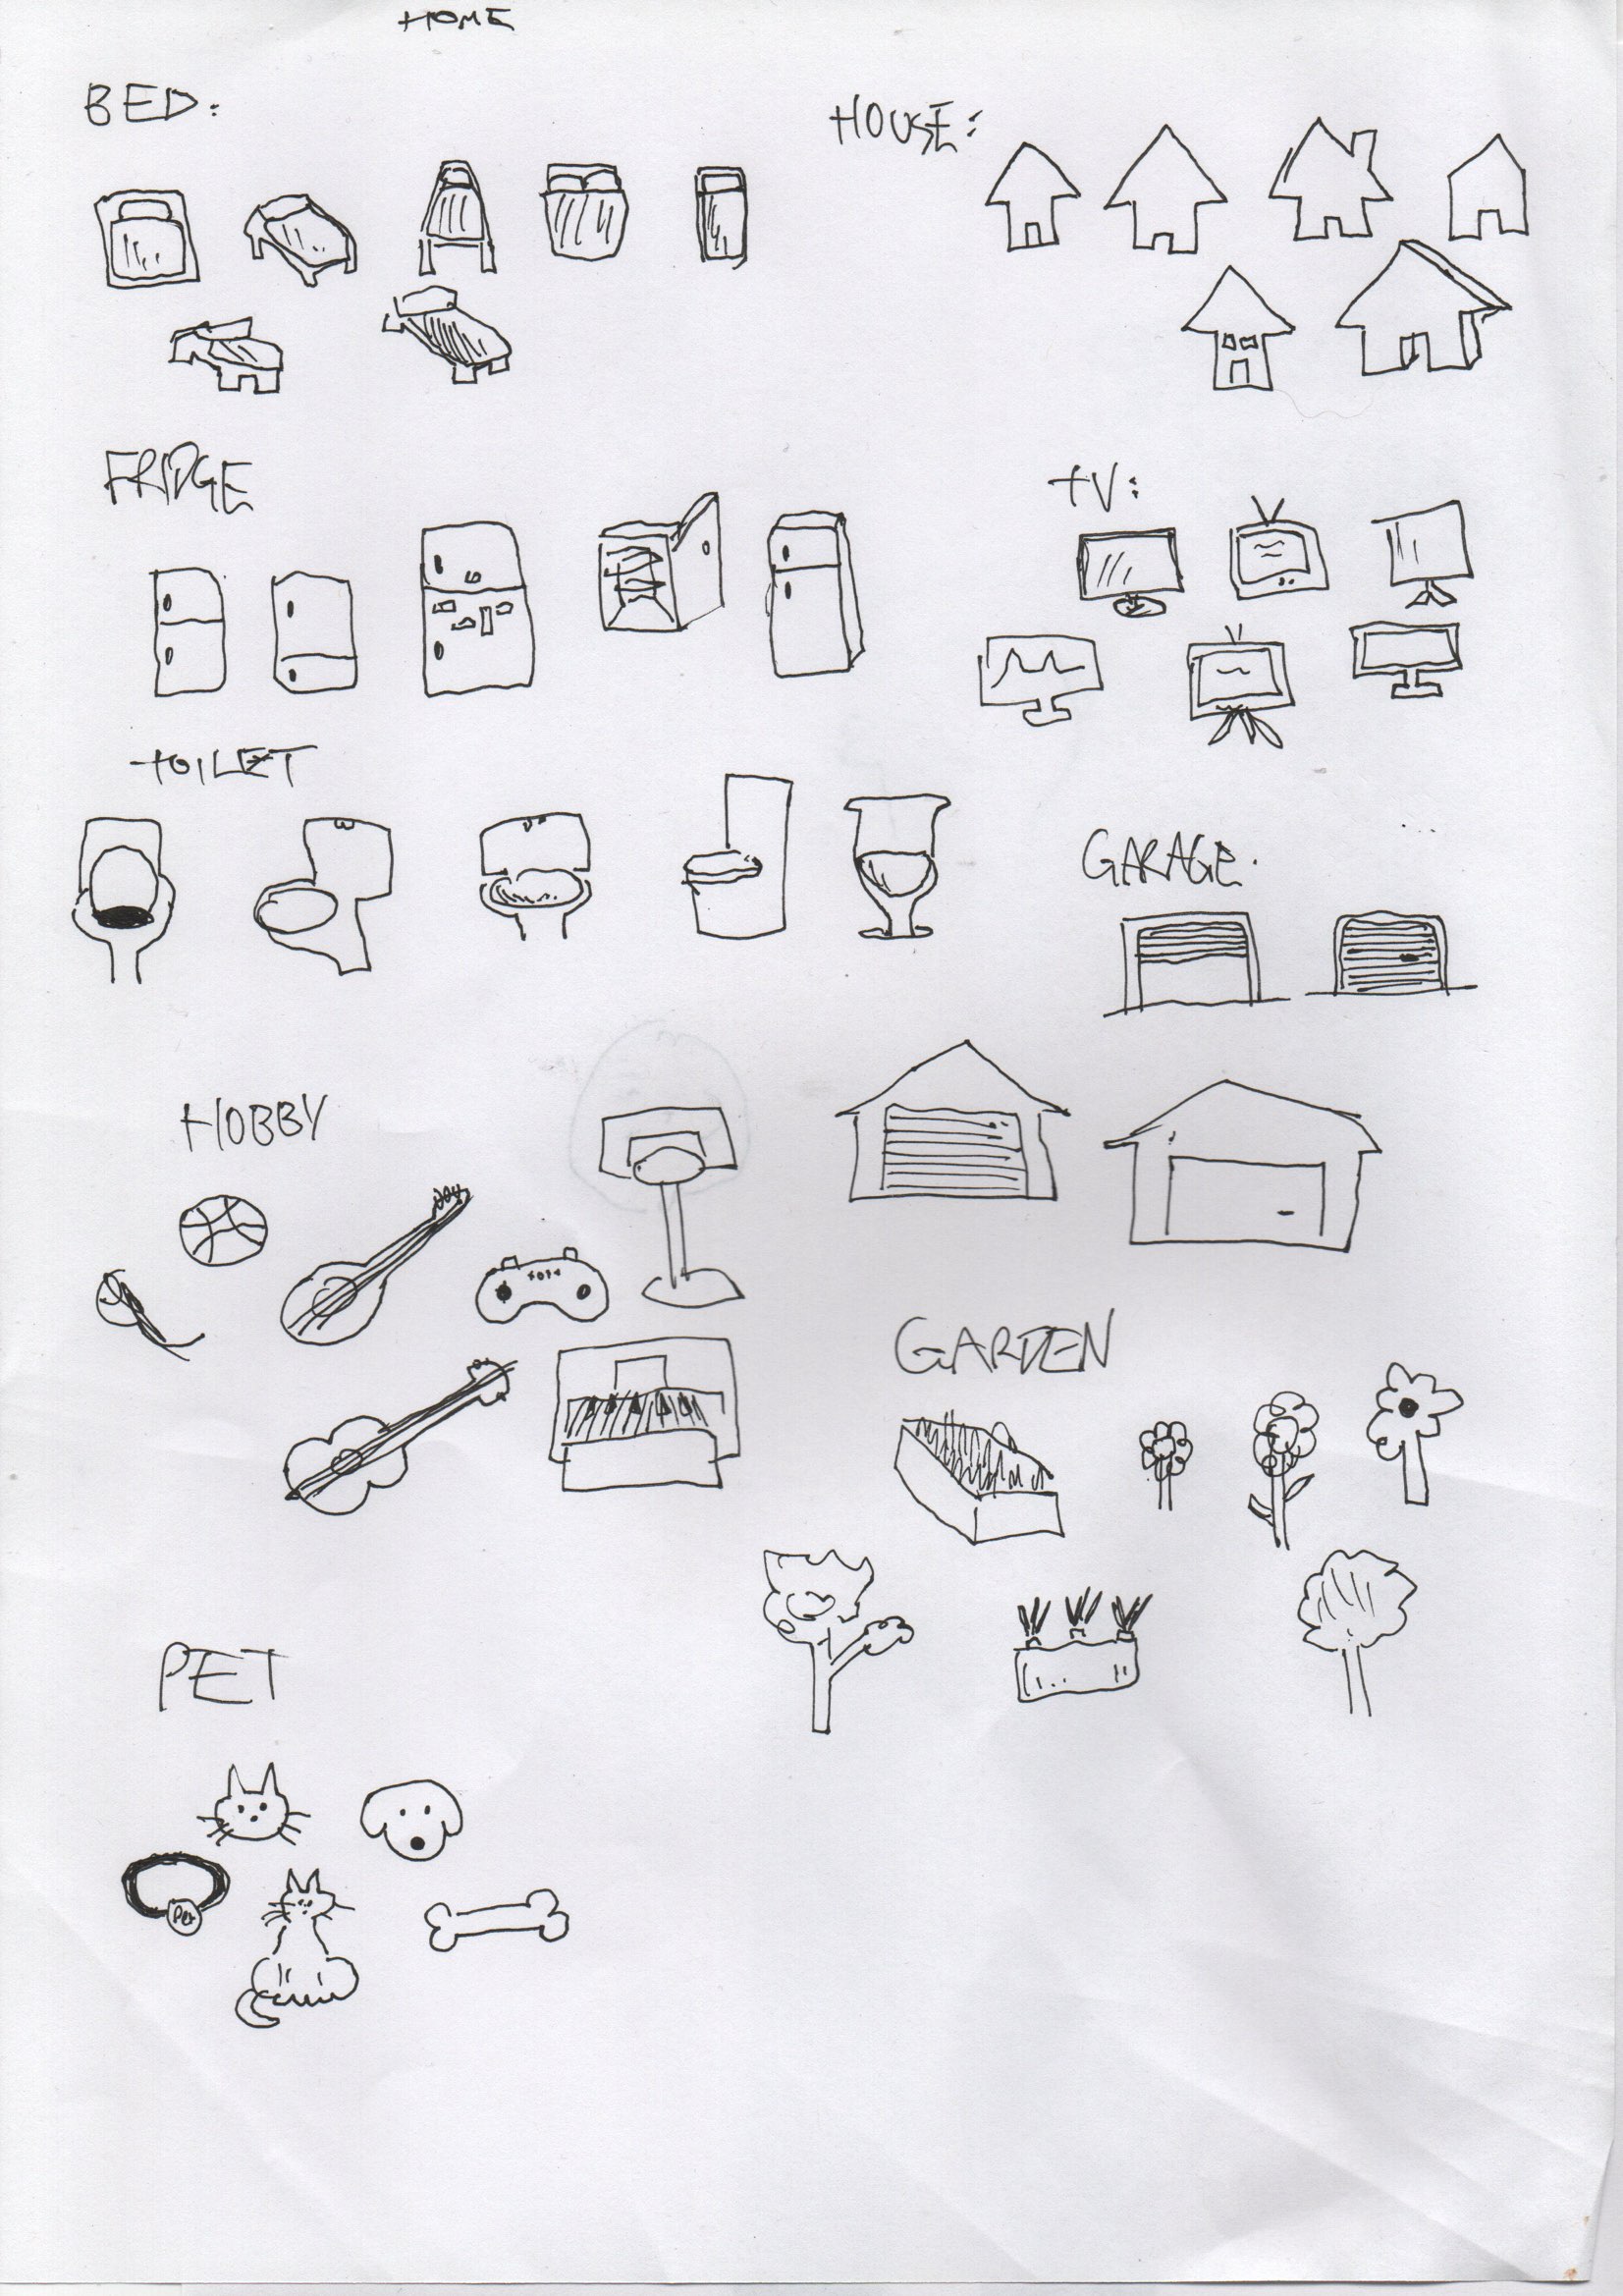 HOME
BED:
HOUSE:
FRIDGE
TV:
TOILET
GARAGE.
HOBBY
GARDEN
PET
Pet